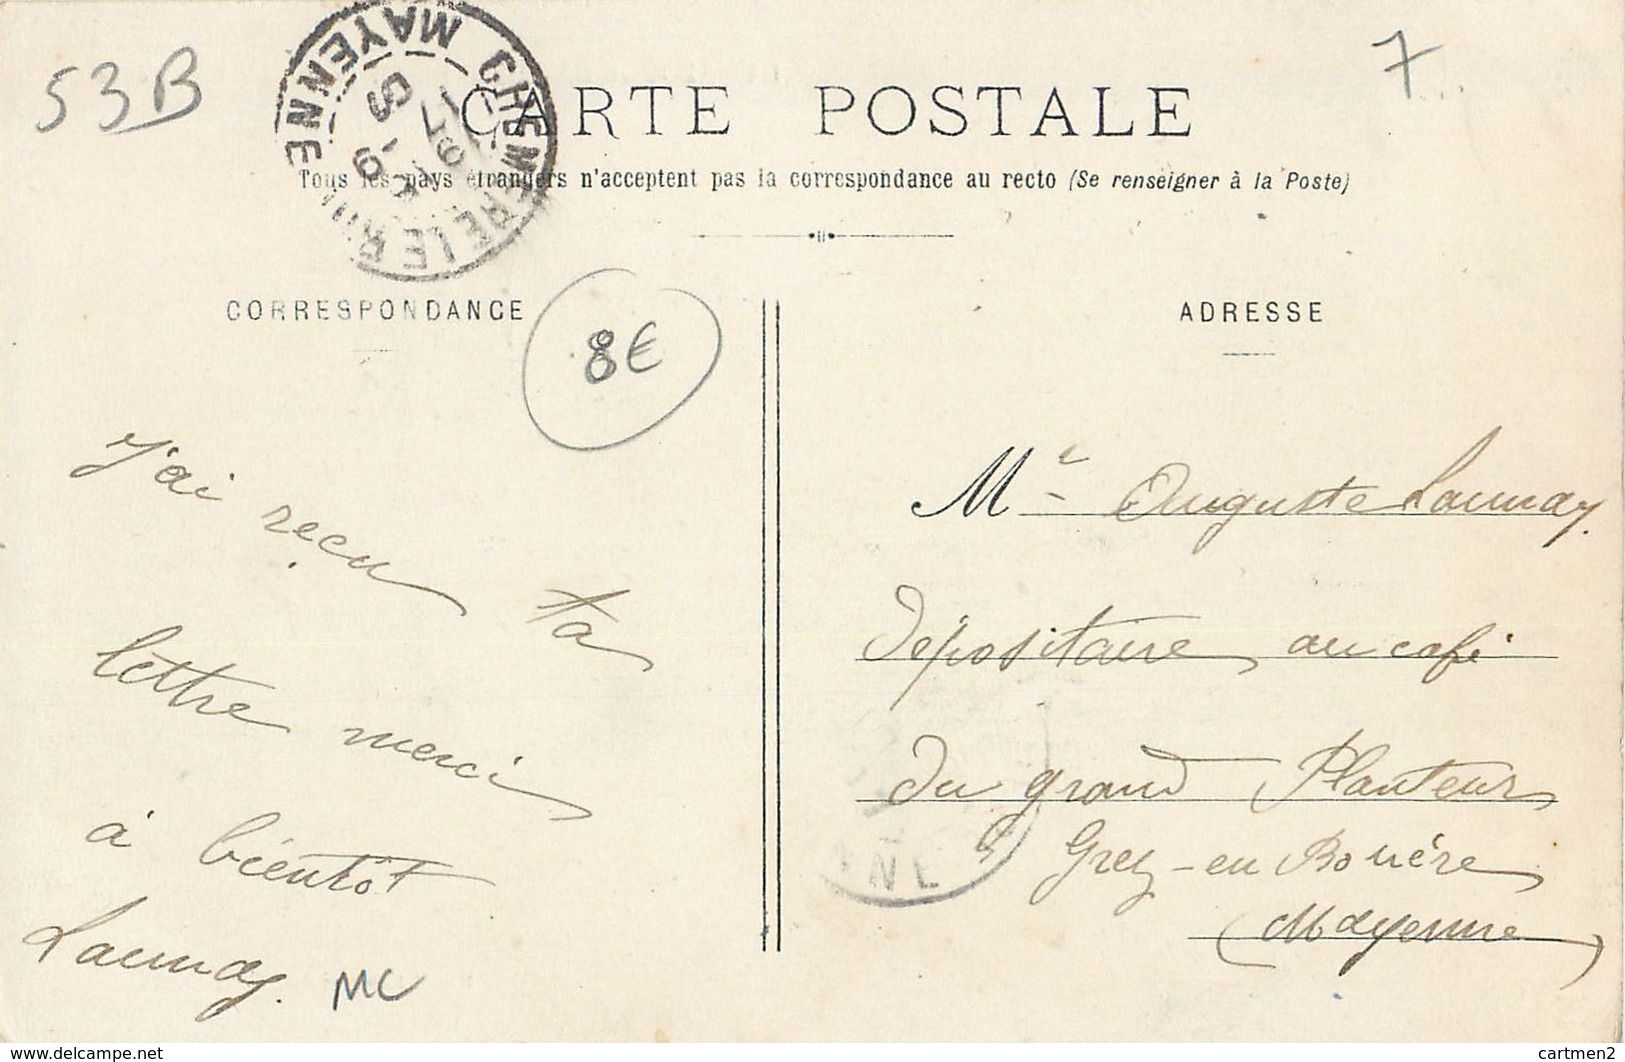 53B
7
MAYENNE
CARTE POSTALE
Tous les pays étrangers n'acceptent pas la correspondance au recto (Se renseigner à la Poste)
CORRESPONDANCE
8€
J'ai reçu ta
lettre merci
à bientôt
Launay.
MC
ADRESSE
Me Auguste Launay.
dépositaire au café
du grand Planteur
Grez-en Bouère
(Mayenne)
www.delcampe.net
cartmen2